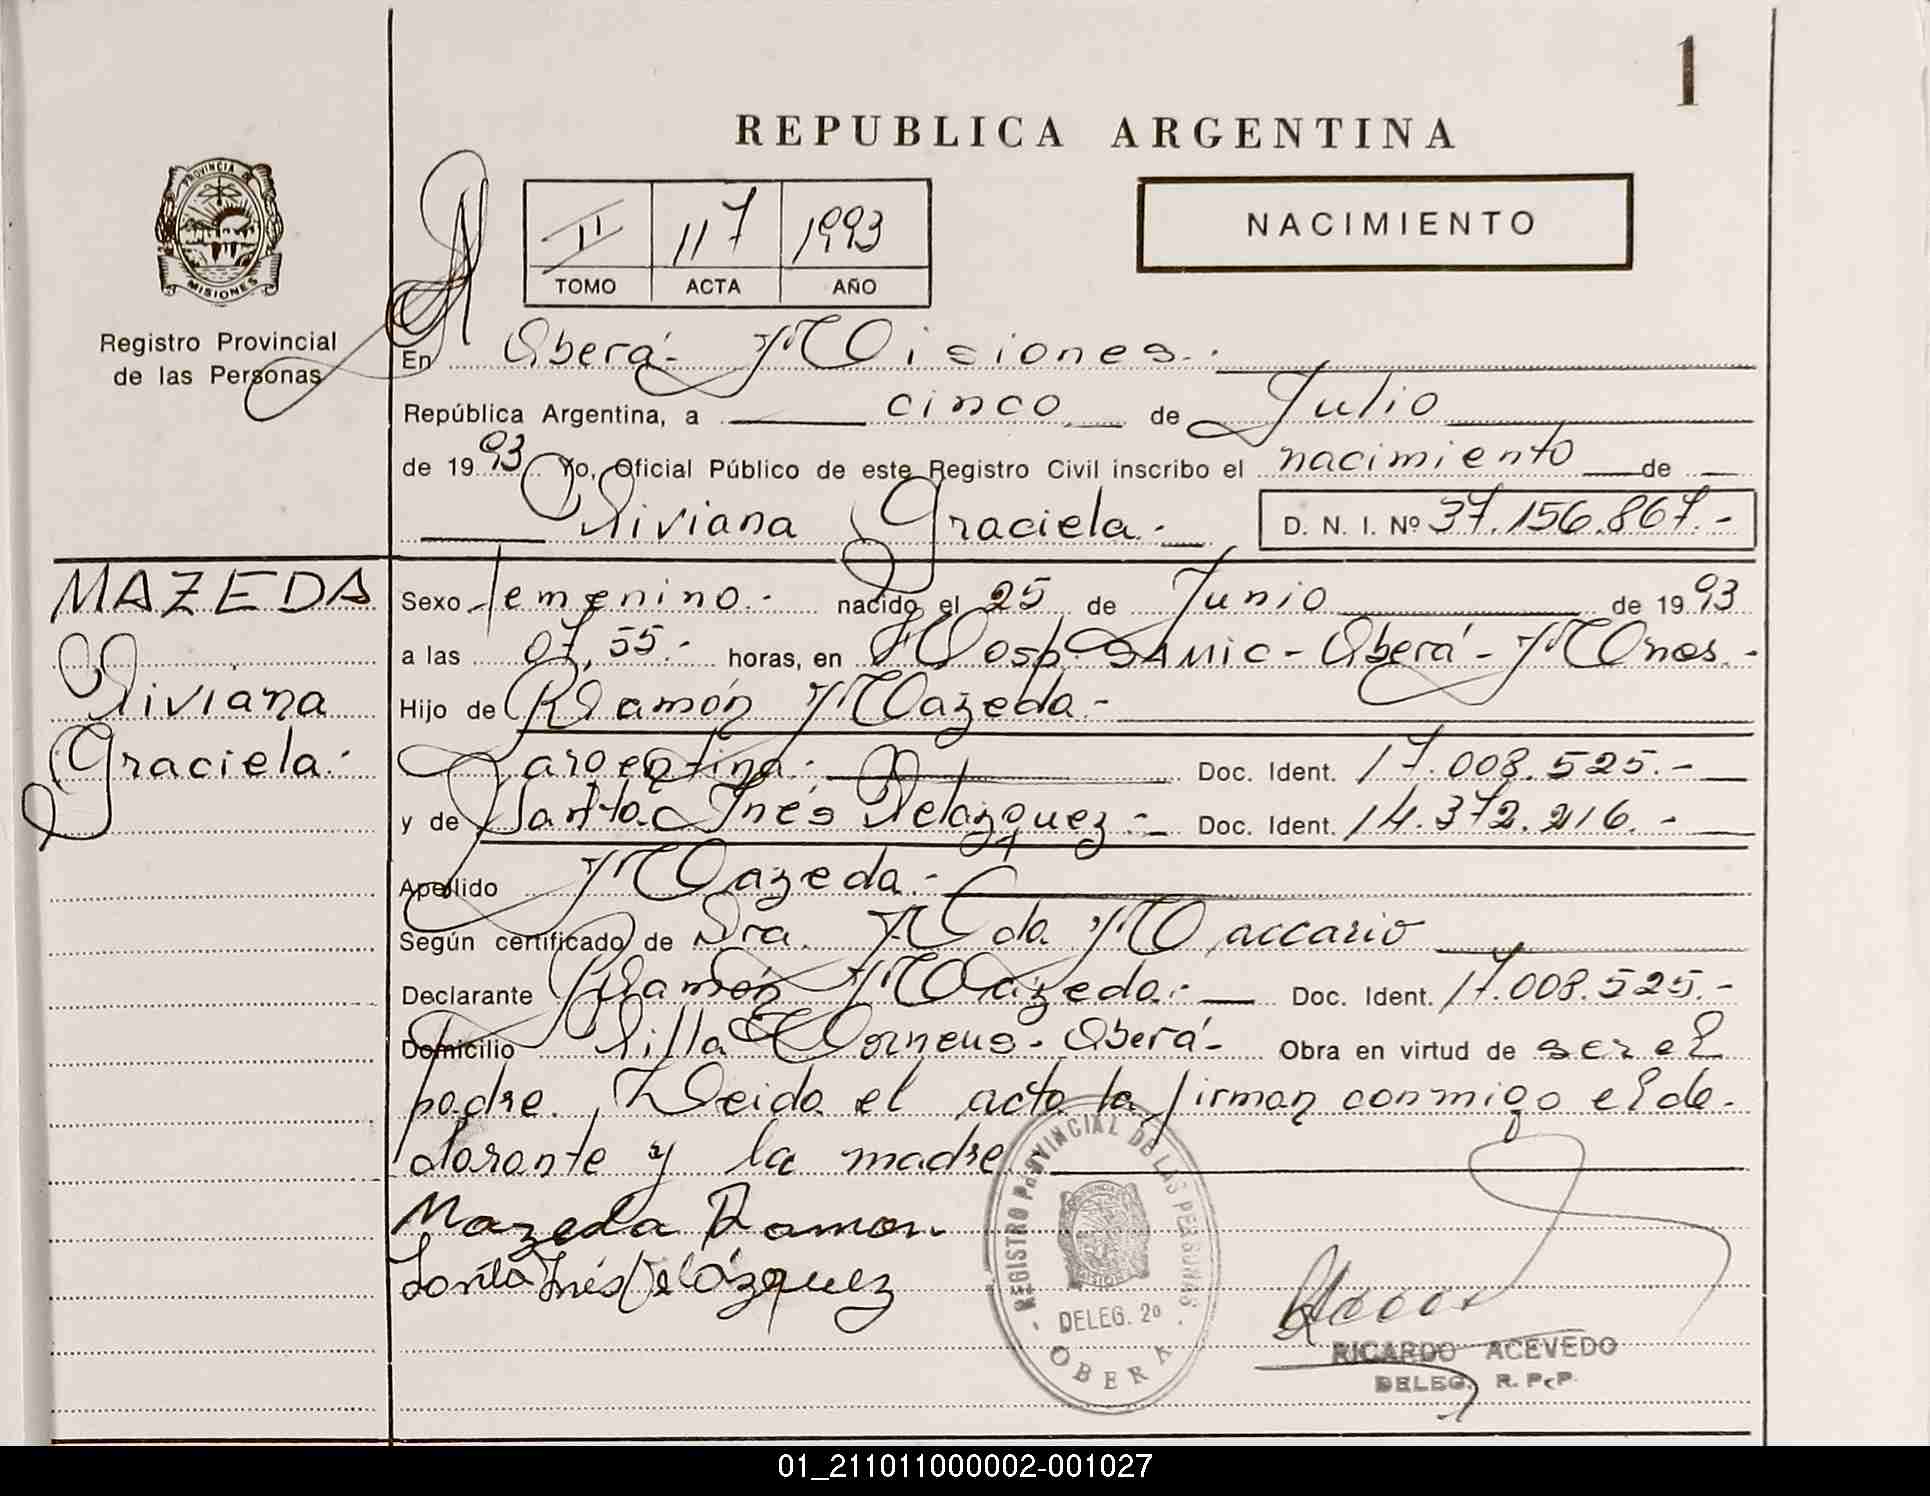 1
REPUBLICA ARGENTINA
PROVINCIA DE
MISIONES
Registro Provincial
de las Personas
II 117 1993
TOMO ACTA AÑO
NACIMIENTO
En Oberá- Misiones.-
República Argentina, a cinco de Julio
de 1993 Yo, Oficial Público de este Registro Civil inscribo el nacimiento de
Viviana Graciela.- D. N. I. Nº 37.156.867.-
MAZEDA
Viviana
Graciela.-
Sexo femenino.- nacido el 25 de Junio de 1993
a las 07,55.- horas, en Hosp. SAMIC - Oberá - Mnes.-
Hijo de Ramón Mazeda.-
argentina.- Doc. Ident. 17.008.525.-
y de Santa Inés Velázquez.- Doc. Ident. 14.372.216.-
Apellido Mazeda.-
Según certificado de Dra. Maccario
Declarante Ramón Mazeda.- Doc. Ident. 17.008.525.-
Domicilio Villa Oberá- Obra en virtud de ser el
padre. Leida el acta la firman conmigo el de-
clarante y la madre
Mazeda Ramon
Santa Inés Velázquez
REGISTRO PROVINCIAL DE LAS PERSONAS
DELEG. 2º
OBERA
RICARDO ACEVEDO
DELEG. R. P. P.
01_211011000002-001027